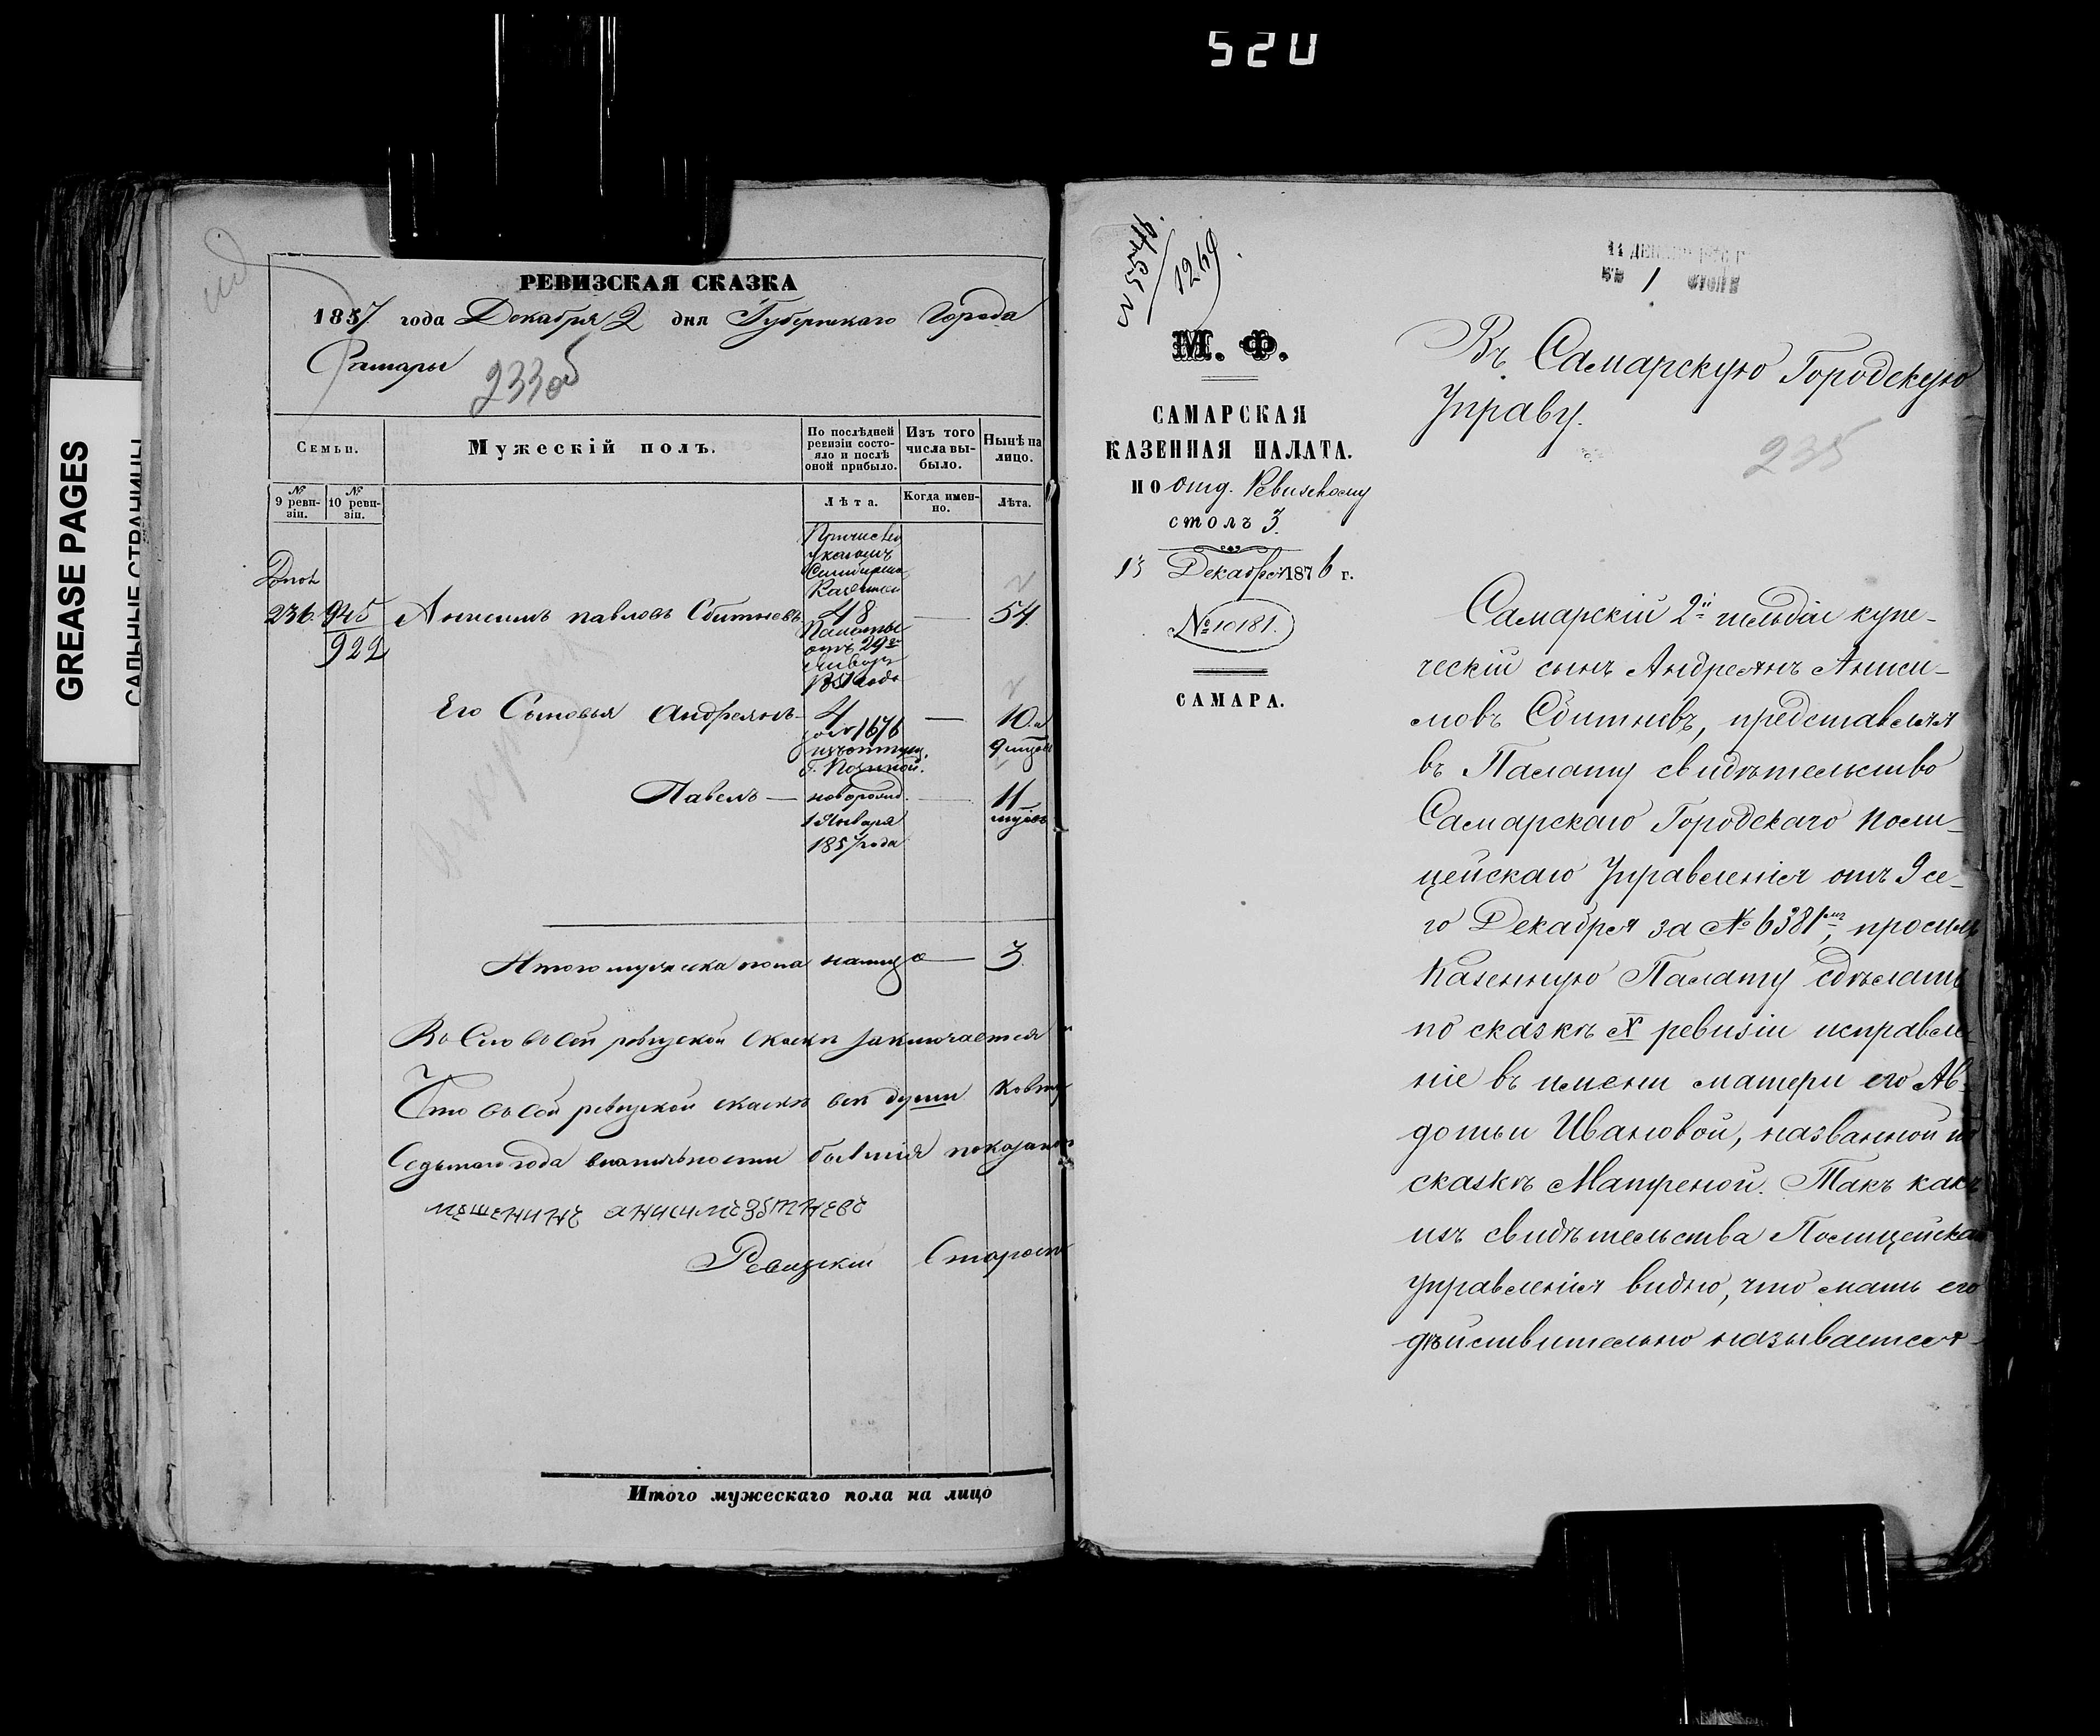 520
GREASE PAGES
САЛЬНЫЕ СТРАНИЦЫ
РЕВИЗСКАЯ СКАЗКА
1857 года Декабря 2 дня Губернскаго Города
Самары
233об
Семьи.
Мужескій полъ.
По послѣдней ревизіи состояло и послѣ оной прибыло.
Изъ того числа выбыло.
Нынѣ на лицо.
№ 9 ревизіи.
№ 10 ревизіи.
Лѣта.
Когда именно.
Лѣта.
Причислен
указомъ
Казенной
236. 945 Анисимъ павловъ Сбитневъ 48 — 54
922
Палаты
отъ 29го
Января
Его Сыновья Андреянъ — 4 — 10 и
9 мцов
Павелъ — новорожд. — 11
1 Января мцовъ
1857 года
Итого мужеска пола налицо — 3
Что въ сей ревизской сказкѣ все души
мещенинъ анисимъ збитневъ
Ревизский Староста
Итого мужескаго пола на лицо
1269
М. Ф.
САМАРСКАЯ
КАЗЕННАЯ ПАЛАТА.
ПО отд. Ревизскому
столъ 3.
13 Декабря 1876 г.
№ 10181.
САМАРА.
1 СТОЛѢ
Въ Самарскую Городскую
Управу.
235
Самарскій 2й гильдіи купе-
ческій сынъ Андреянъ Аниси-
мовъ Сбитневъ, представляя
въ Палату свидѣтельство
Самарскаго Городскаго Поли-
цейскаго Управленія отъ 9 се-
го Декабря за № 6381мъ, проситъ
Казенную Палату сдѣлать
по сказкѣ X ревизіи исправле-
ніе въ имени матери его Ав-
дотьи Ивановой, названной по
сказкѣ Матреной. Такъ какъ
изъ свидѣтельства Полицейскаго
управленія видно, что мать его
дѣйствительно называется